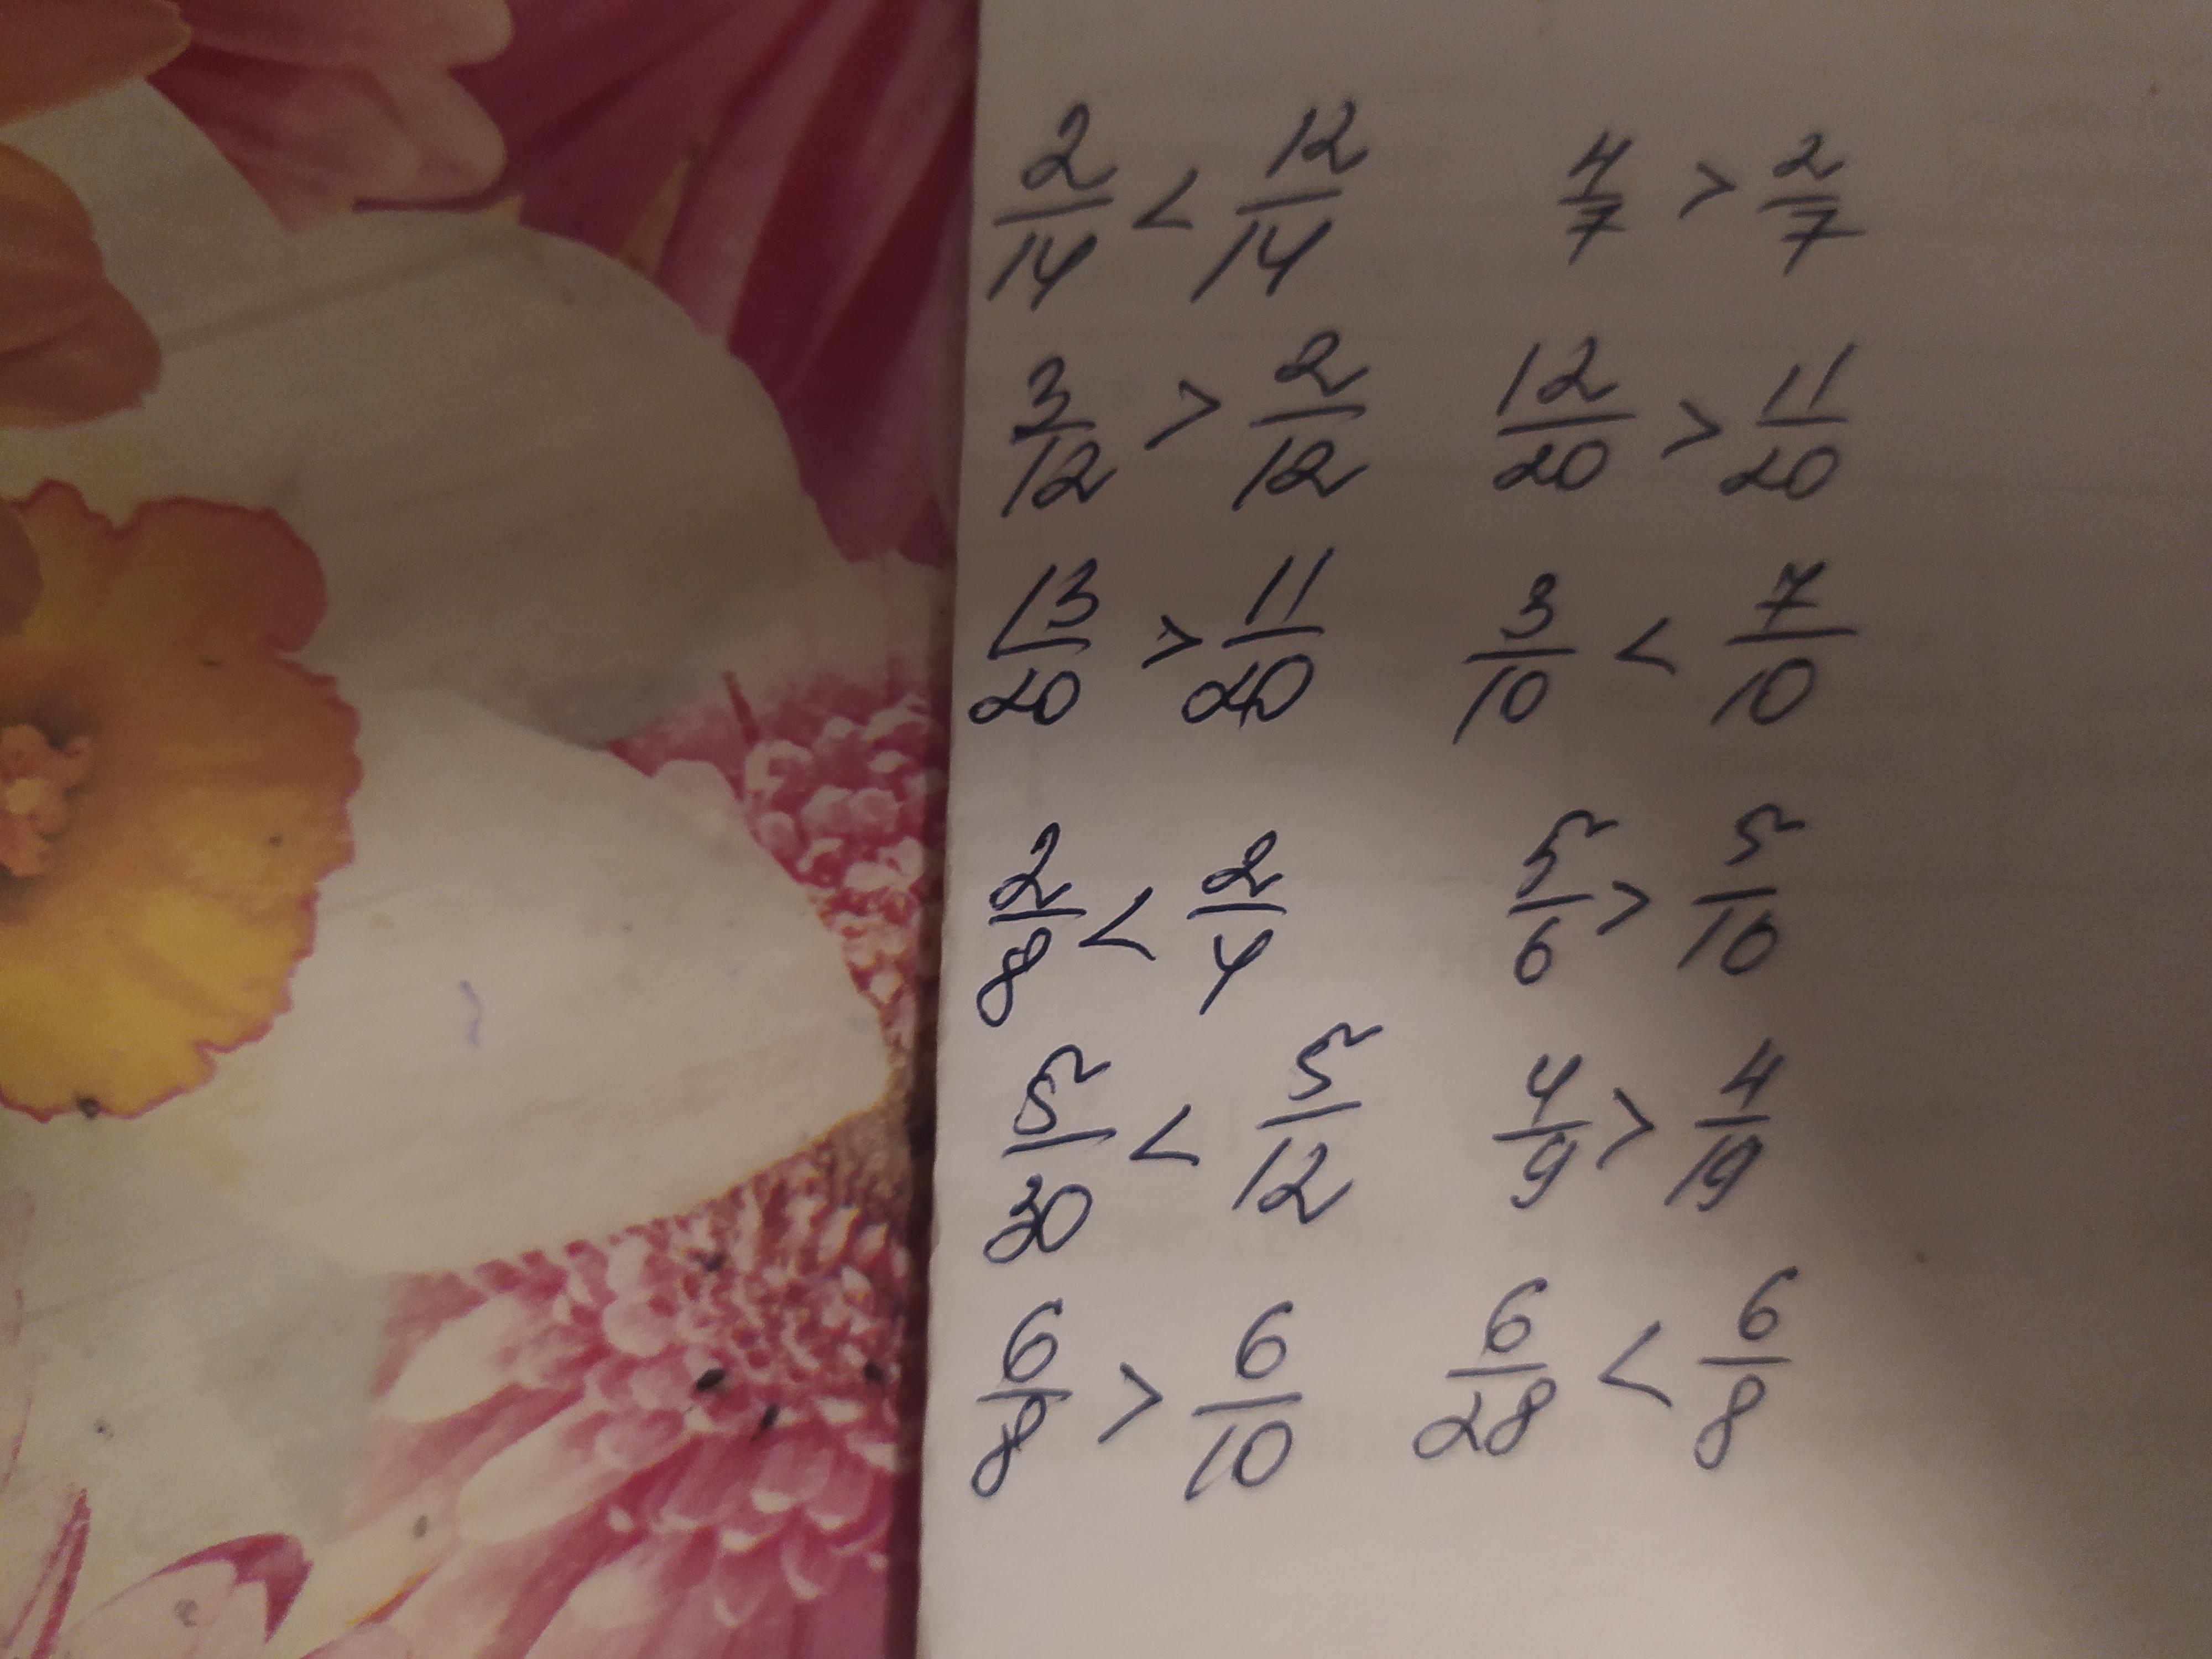 2/14 < 12/14 4/7 > 2/7
3/12 > 2/12 12/20 > 11/20
13/20 > 11/20 3/10 < 7/10
2/8 < 2/4 5/6 > 5/10
5/30 < 5/12 4/9 > 4/19
6/8 > 6/10 6/28 < 6/8